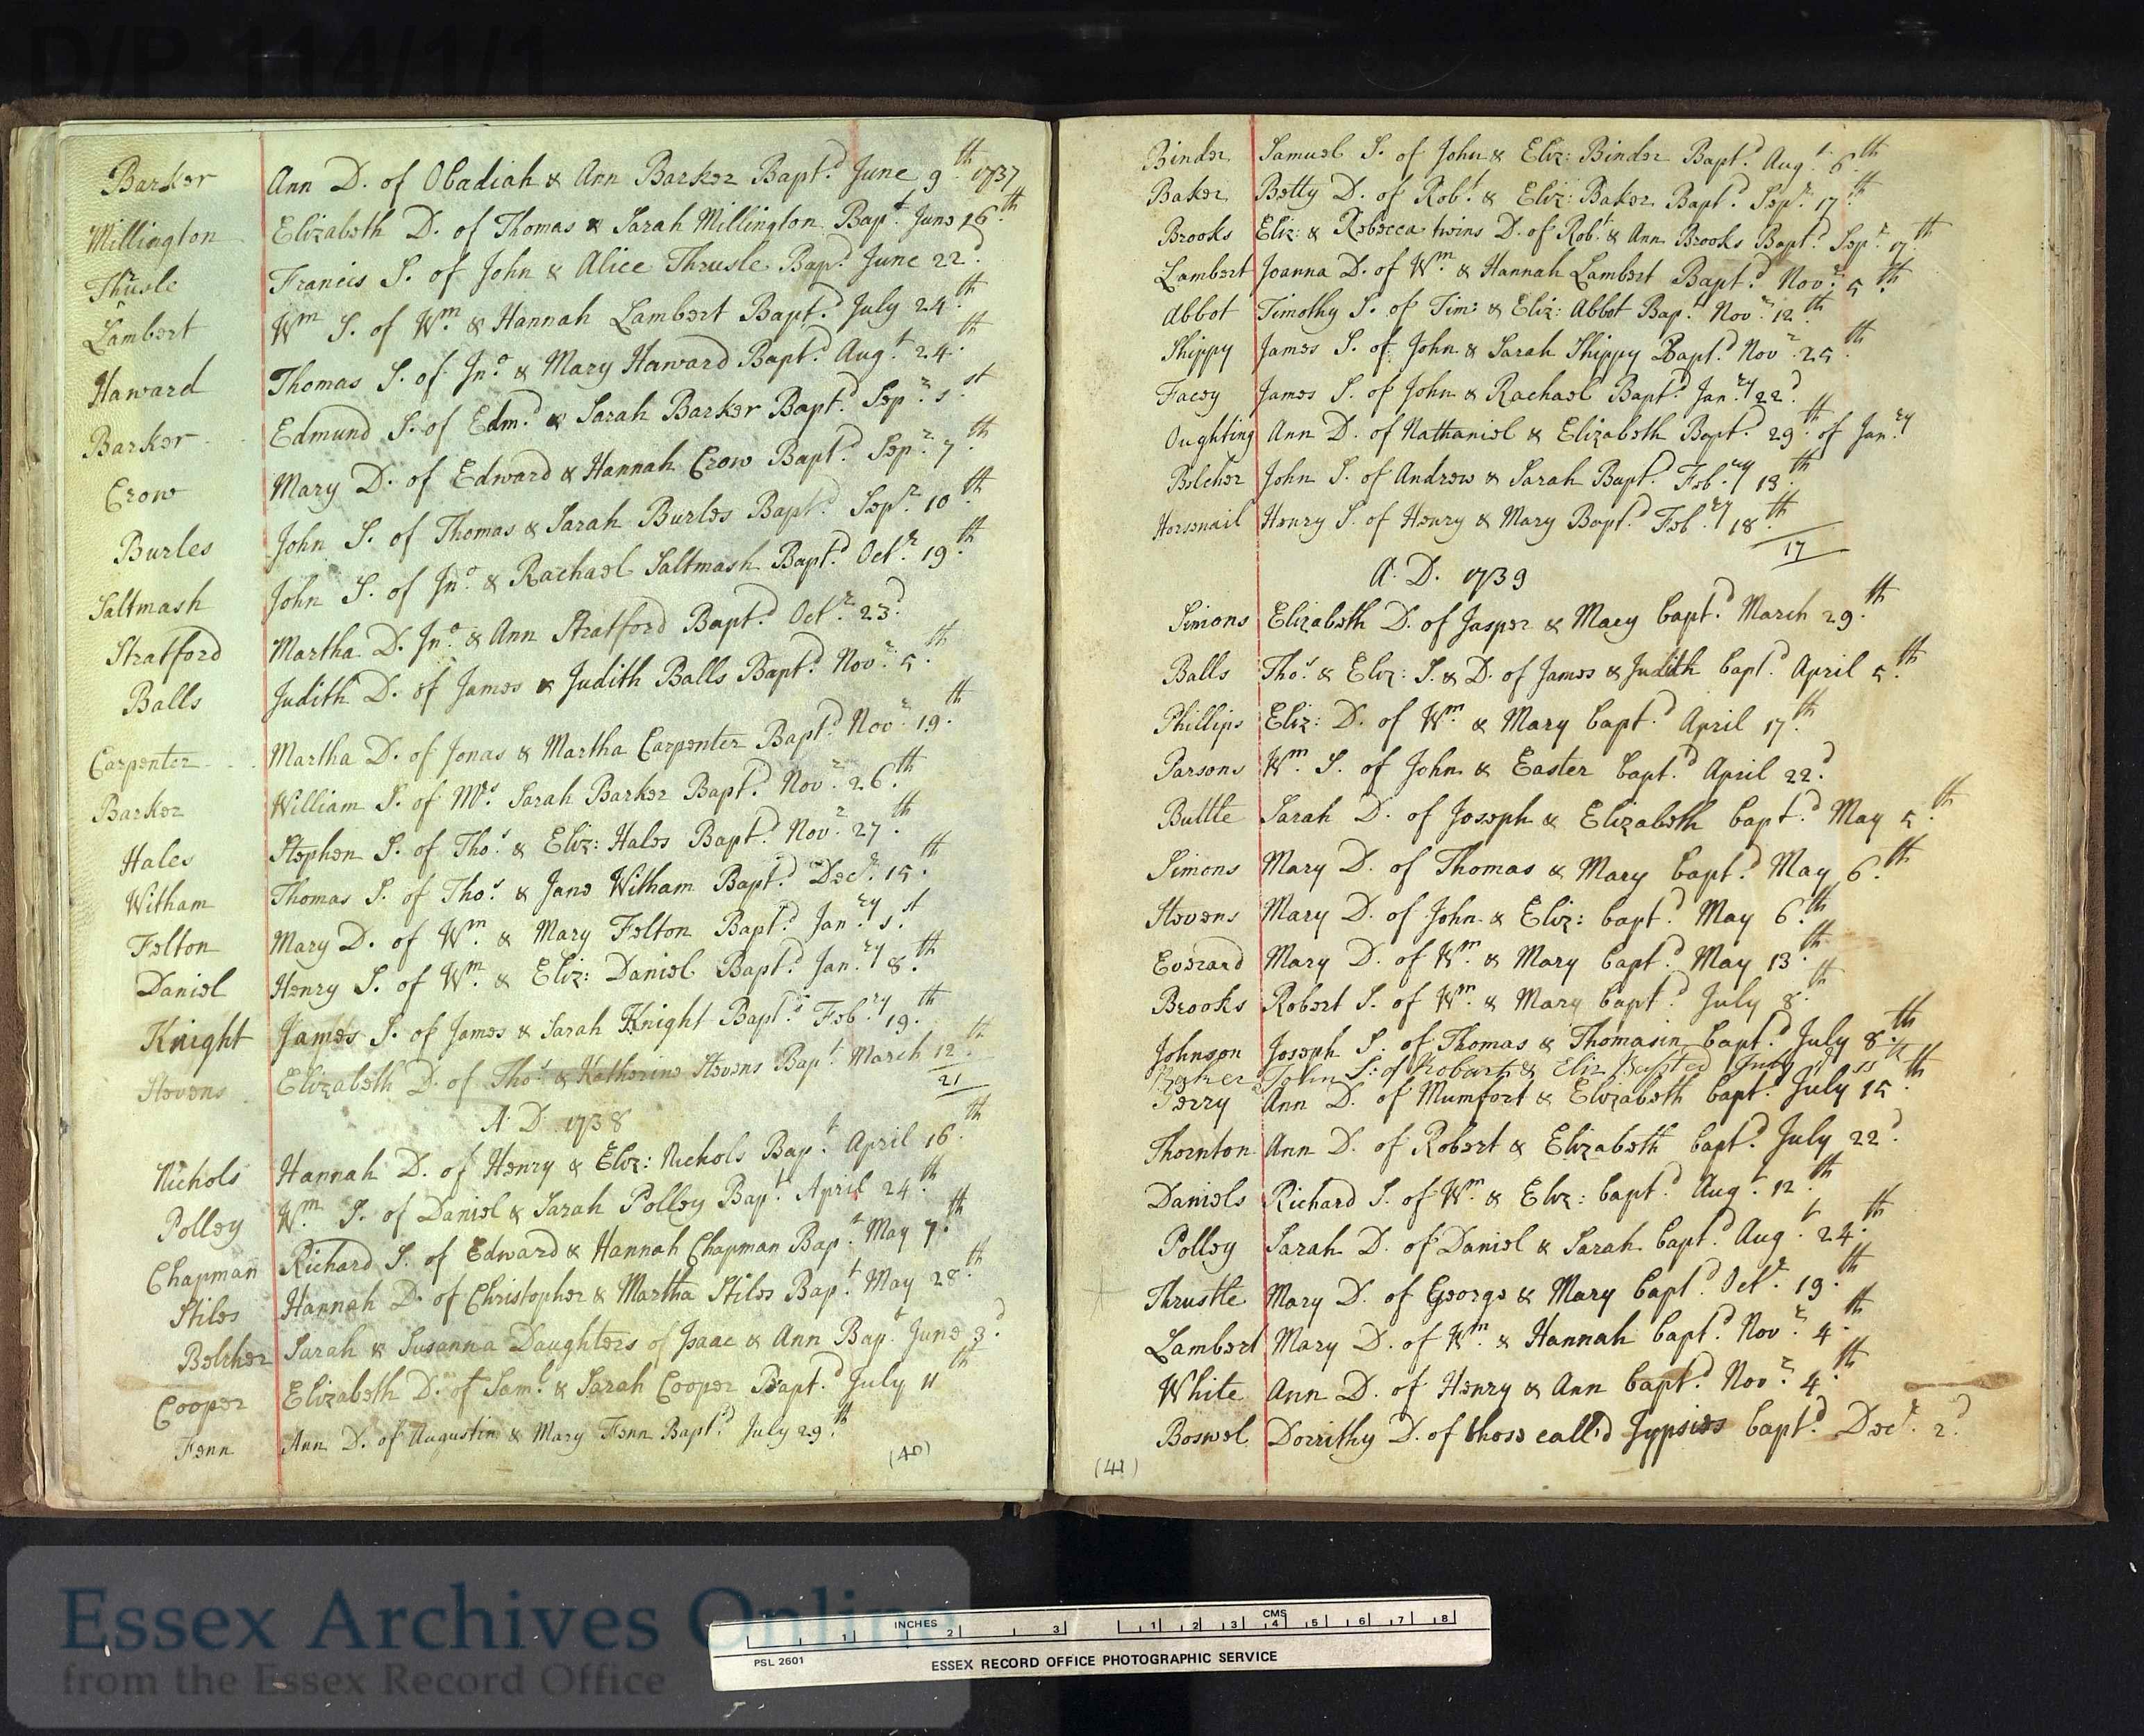 D/P 114/1/1
Barker Ann D. of Obadiah & Ann Barker Bapt.d June 9.th 1737
Millington Elizabeth D. of Thomas & Sarah Millington Bap.t June 16.th
Thusle Francis S. of John & Alice Thrusle Bap.d June 22.d
Lambert W.m S. of W.m & Hannah Lambert Bapt.d July 24.th
Haward Thomas S. of Jn.o & Mary Haward Bapt.d Aug.t 24.th
Barker Edmund S. of Edm.d & Sarah Barker Bapt.d Sep.r 1.st
Crow Mary D. of Edward & Hannah Crow Bapt.d Sep.r 7.th
Burles John S. of Thomas & Sarah Burles Bapt.d Sep.r 10.th
Saltmash John S. of Jn.o & Rachael Saltmash Bapt.d Oct.r 19.th
Stratford Martha D. Jn.o & Ann Stratford Bapt.d Oct.r 23.d
Balls Judith D. of James & Judith Balls Bapt.d Nov.r 5.th
Carpenter Martha D. of Jonas & Martha Carpenter Bapt.d Nov.r 19.th
Barker William S. of M.rs Sarah Barker Bapt.d Nov.r 26.th
Hales Stephen S. of Tho.s & Eliz: Hales Bapt.d Nov.r 27.th
Witham Thomas S. of Tho.s & Jane Witham Bapt.d Dec.r 15.th
Felton Mary D. of W.m & Mary Felton Bapt.d Jan.ry 1.st
Daniel Henry S. of W.m & Eliz: Daniel Bapt.d Jan.ry 8.th
Knight James S. of James & Sarah Knight Bapt.d Feb.ry 19.th
Stevens Elizabeth D. of Tho.s & Katherine Stevens Bap.t March 12.th
21
A. D. 1738
Nichols Hannah D. of Henry & Eliz: Nichols Bap.t April 16.th
Polley W.m S. of Daniel & Sarah Polley Bap.t April 24.th
Chapman Richard S. of Edward & Hannah Chapman Bap.t May 7.th
Stiles Hannah D. of Christopher & Martha Stiles Bap.t May 28.th
Belcher Sarah & Susanna Daughters of Isaac & Ann Bap.t June 3.d
Cooper Elizabeth D. of Sam.l & Sarah Cooper Bapt.d July 11th
Fenn Ann D. of Augustin & Mary Fenn Bapt.d July 29.th
(40)
Binder Samuel S. of John & Eliz: Binder Bapt.d Aug.t 6.th
Baker Betty D. of Rob.t & Eliz: Baker Bapt.d Sep.r 17.th
Brooks Eliz: & Rebecca twins D. of Rob.t & Ann Brooks Bapt.d Sep.r 17.th
Lambert Joanna D. of W.m & Hannah Lambert Bapt.d Nov.r 5.th
Abbot Timothy S. of Tim: & Eliz: Abbot Bap.t Nov.r 12.th
Shippy James S. of John & Sarah Shippy Bapt.d Nov.r 25.th
Facey James S. of John & Rachael Bapt.d Jan.ry 22.d
Oughting Ann D. of Nathaniel & Elizabeth Bapt.d 29.th of Jan.ry
Belcher John S. of Andrew & Sarah Bapt.d Feb.ry 13.th
Horsenail Henry S. of Henry & Mary Bapt.d Feb.ry 18.th
17
A. D. 1739
Simons Elizabeth D. of Jasper & Mary bapt.d March 29.th
Balls Tho.s & Eliz: S. & D. of James & Judith bapt.d April 5.th
Phillips Eliz: D. of W.m & Mary bapt.d April 17.th
Parsons W.m S. of John & Easter bapt.d April 22.d
Buttle Sarah D. of Joseph & Elizabeth bapt.d May 5.th
Simons Mary D. of Thomas & Mary bapt.d May 6.th
Stevens Mary D. of John & Eliz: bapt.d May 6.th
Everard Mary D. of W.m & Mary bapt.d May 13.th
Brooks Robert S. of W.m & Mary bapt.d July 8.th
Johnson Joseph S. of Thomas & Thomasin bapt.d July 8.th
Baker John S: of Robart & Eliz Bapted July
Perry Ann D. of Mumfort & Elizabeth bapt.d July 15.th
Thornton Ann D. of Robert & Elizabeth bapt.d July 22.d
Daniels Richard S. of W.m & Eliz: bapt.d Aug.t 12.th
Polley Sarah D. of Daniel & Sarah bapt.d Aug.t 24.th
Thrustle Mary D. of George & Mary bapt.d Oct.r 19.th
Lambert Mary D. of W.m & Hannah bapt.d Nov.r 4.th
White Ann D. of Henry & Ann bapt.d Nov.r 4.th
Boswel Dorrithy D. of those call'd Gypsies bapt.d Dec.r 2.d
(41)
Essex Archives Online
from the Essex Record Office
INCHES 1 2 3 CMS 1 2 3 4 5 6 7 8
PSL 2601 ESSEX RECORD OFFICE PHOTOGRAPHIC SERVICE